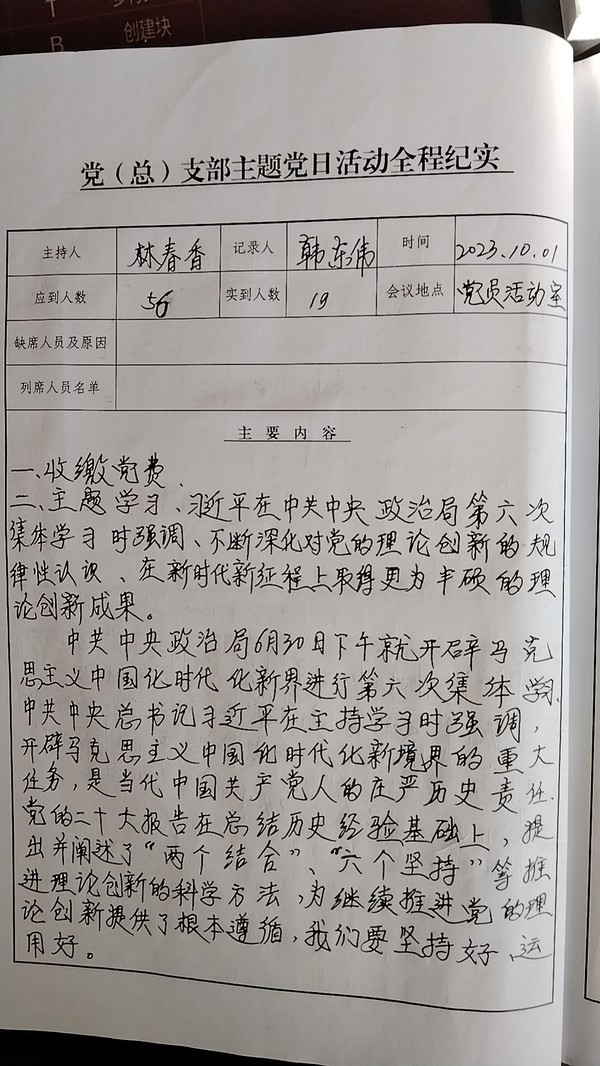 T
创建块
B
党（总）支部主题党日活动全程纪实
主持人 林春香 记录人 韩东伟 时间 2023.10.01
应到人数 56 实到人数 19 会议地点 党员活动室
缺席人员及原因
列席人员名单
主要内容
一、收缴党费.
二、主题学习、习近平在中共中央政治局第六次
集体学习时强调、不断深化对党的理论创新的规
律性认识、在新时代新征程上取得更为丰硕的理
论创新成果。
中共中央政治局6月30日下午就开辟马克
思主义中国化时代化新界进行第六次集体学习.
中共中央总书记习近平在主持学习时强调，
开辟马克思主义中国化时代化新境界的重大
任务，是当代中国共产党人的庄严历史责任.
党的二十大报告在总结历史经验基础上，提
出并阐述了“两个结合”、“六个坚持”等推
进理论创新的科学方法，为继续推进党的理
论创新提供了根本遵循，我们要坚持好、运
用好。